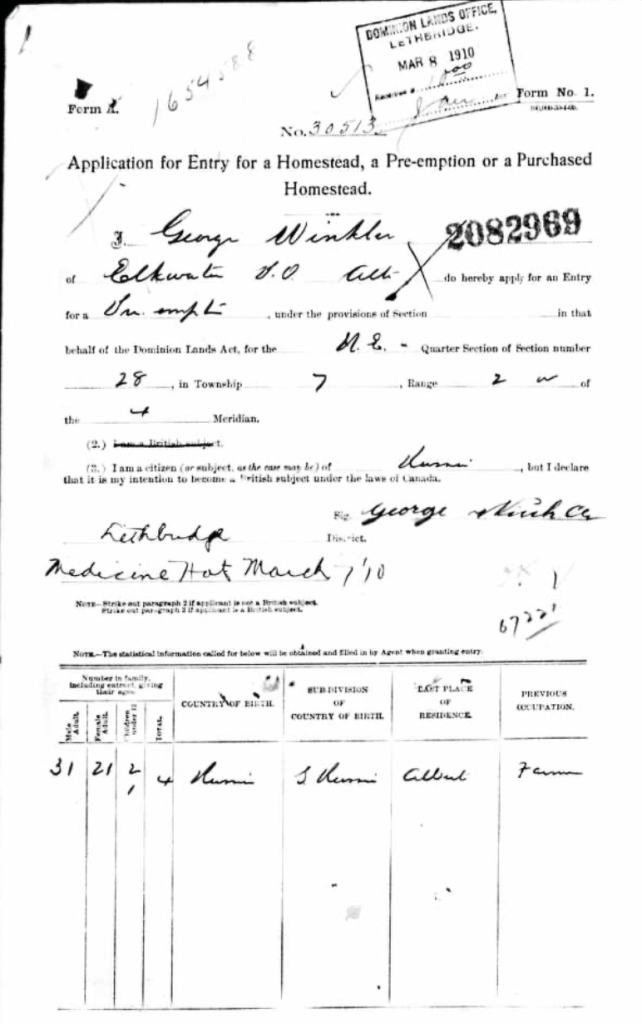 DOMINION LANDS OFFICE,
LETHBRIDGE.
MAR 8 1910
Received $ 10.00
1654588
Form A.
Form No. 1.
No. 30513
Application for Entry for a Homestead, a Pre-emption or a Purchased
Homestead.
I, George Winkler
2082969
of Elkwater P.O Alt do hereby apply for an Entry
for a Pre. empt , under the provisions of Section in that
behalf of the Dominion Lands Act, for the N.E. - Quarter Section of Section number
28 , in Township 7 , Range 2 w of
the 4 Meridian.
(2.) I am a British subject.
(3.) I am a citizen (or subject, as the case may be) of Russia , but I declare
that it is my intention to become a British subject under the laws of Canada.
Sig. George
Lethbridge District.
Medicine Hat March 7 '10
NOTE—Strike out paragraph 2 if applicant is not a British subject.
Strike out paragraph 3 if applicant is a British subject.
67221
NOTE.—The statistical information called for below will be obtained and filled in by Agent when granting entry.
Number in family, including entrant, giving their ages.
Male Adult.
Female Adult.
Children under 12
Total.
COUNTRY OF BIRTH.
SUB-DIVISION OF COUNTRY OF BIRTH.
LAST PLACE OF RESIDENCE.
PREVIOUS OCCUPATION.
31 21 2 4 Russia S Russia Albert Farmer
1